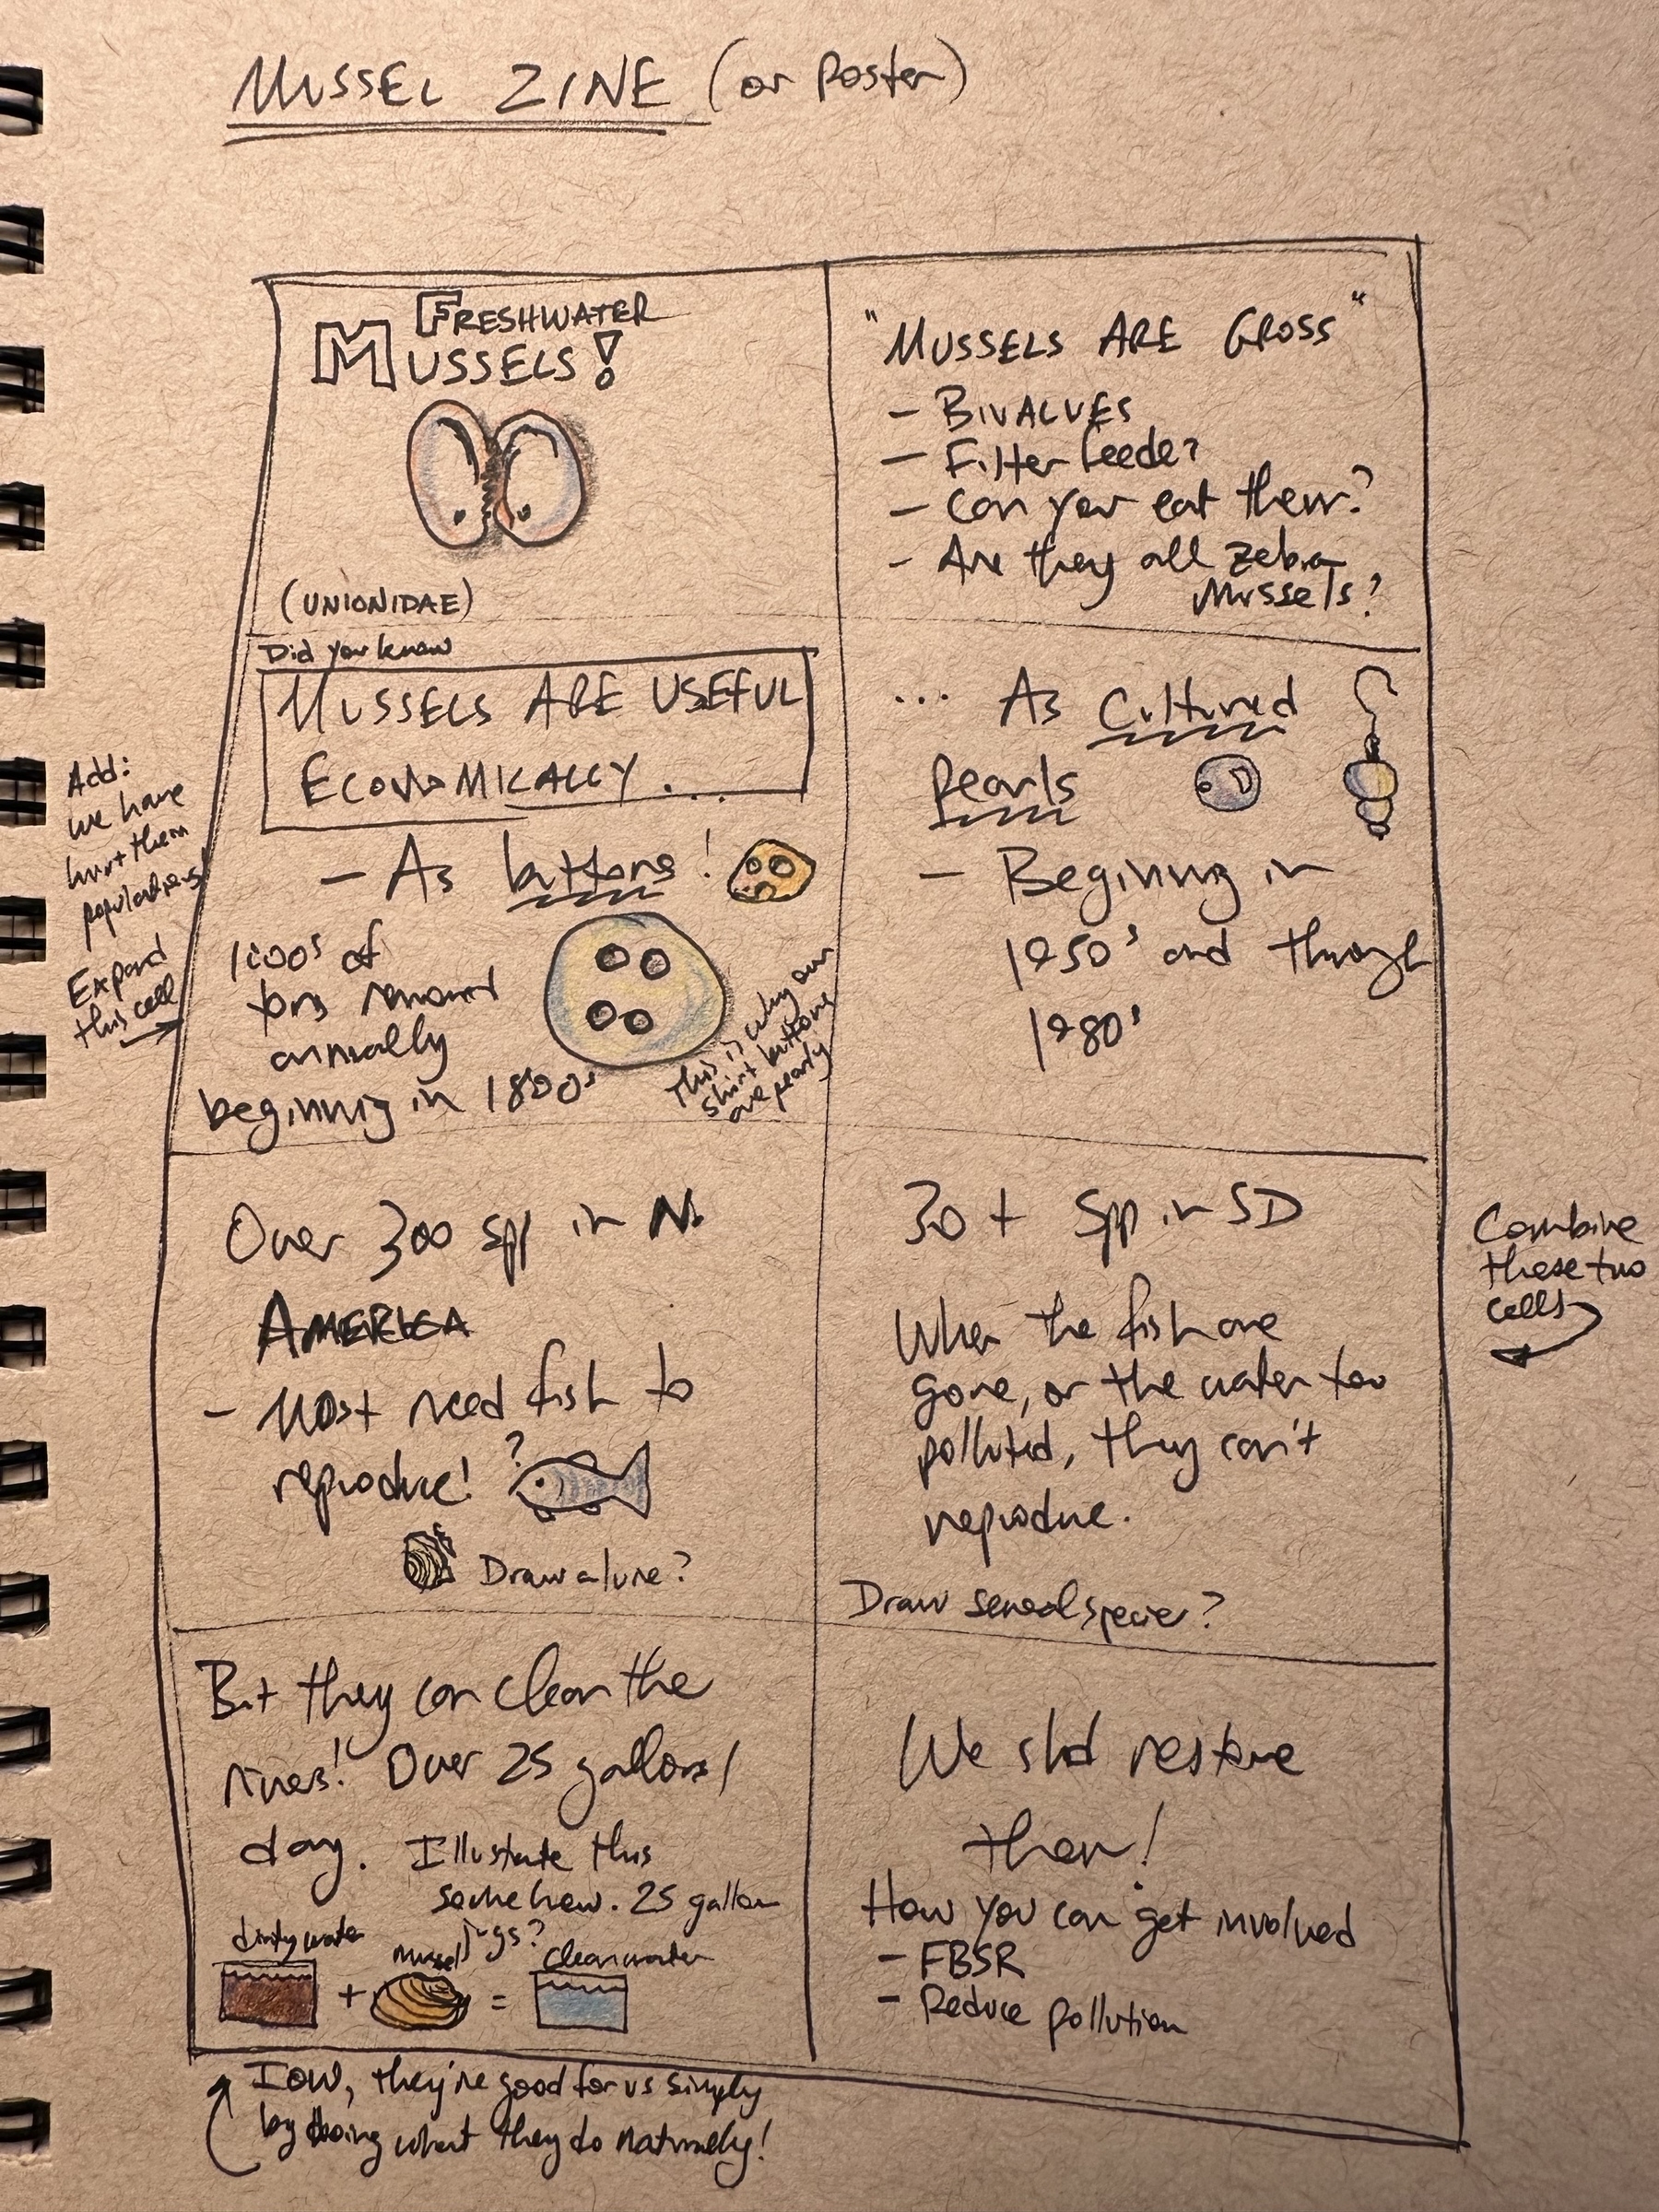 MUSSEL ZINE (or Poster)
FRESHWATER
MUSSELS!
(UNIONIDAE)
"MUSSELS ARE GROSS"
- BIVALVES
- Filter feeder?
- Can you eat them?
- Are they all zebra
Mussels?
Did you know
MUSSELS ARE USEFUL
ECONOMICALLY...
- As buttons!
1000s of
tons removed
annually
beginning in 1800s
This is why our
shirt buttons
are pearly
Add:
We have
hurt them
populations!
Expand
this cell
... As Cultured
Pearls
- Beginning in
1950's and through
1980's
Over 300 spp in N.
AMERICA
- Most need fish to
reproduce!
?
Draw a lure?
30+ Spp in SD
When the fish are
gone, or the water too
polluted, they can't
reproduce.
Draw several species?
Combine
these two
cells
But they can clean the
rivers! Over 25 gallons/
day. Illustrate this
somehow. 25 gallon
jugs?
dirty water
mussel
clean water
+ =
We shd restore
them!
How you can get involved
- FBSR
- Reduce pollution
IOW, they're good for us simply
by doing what they do naturally!